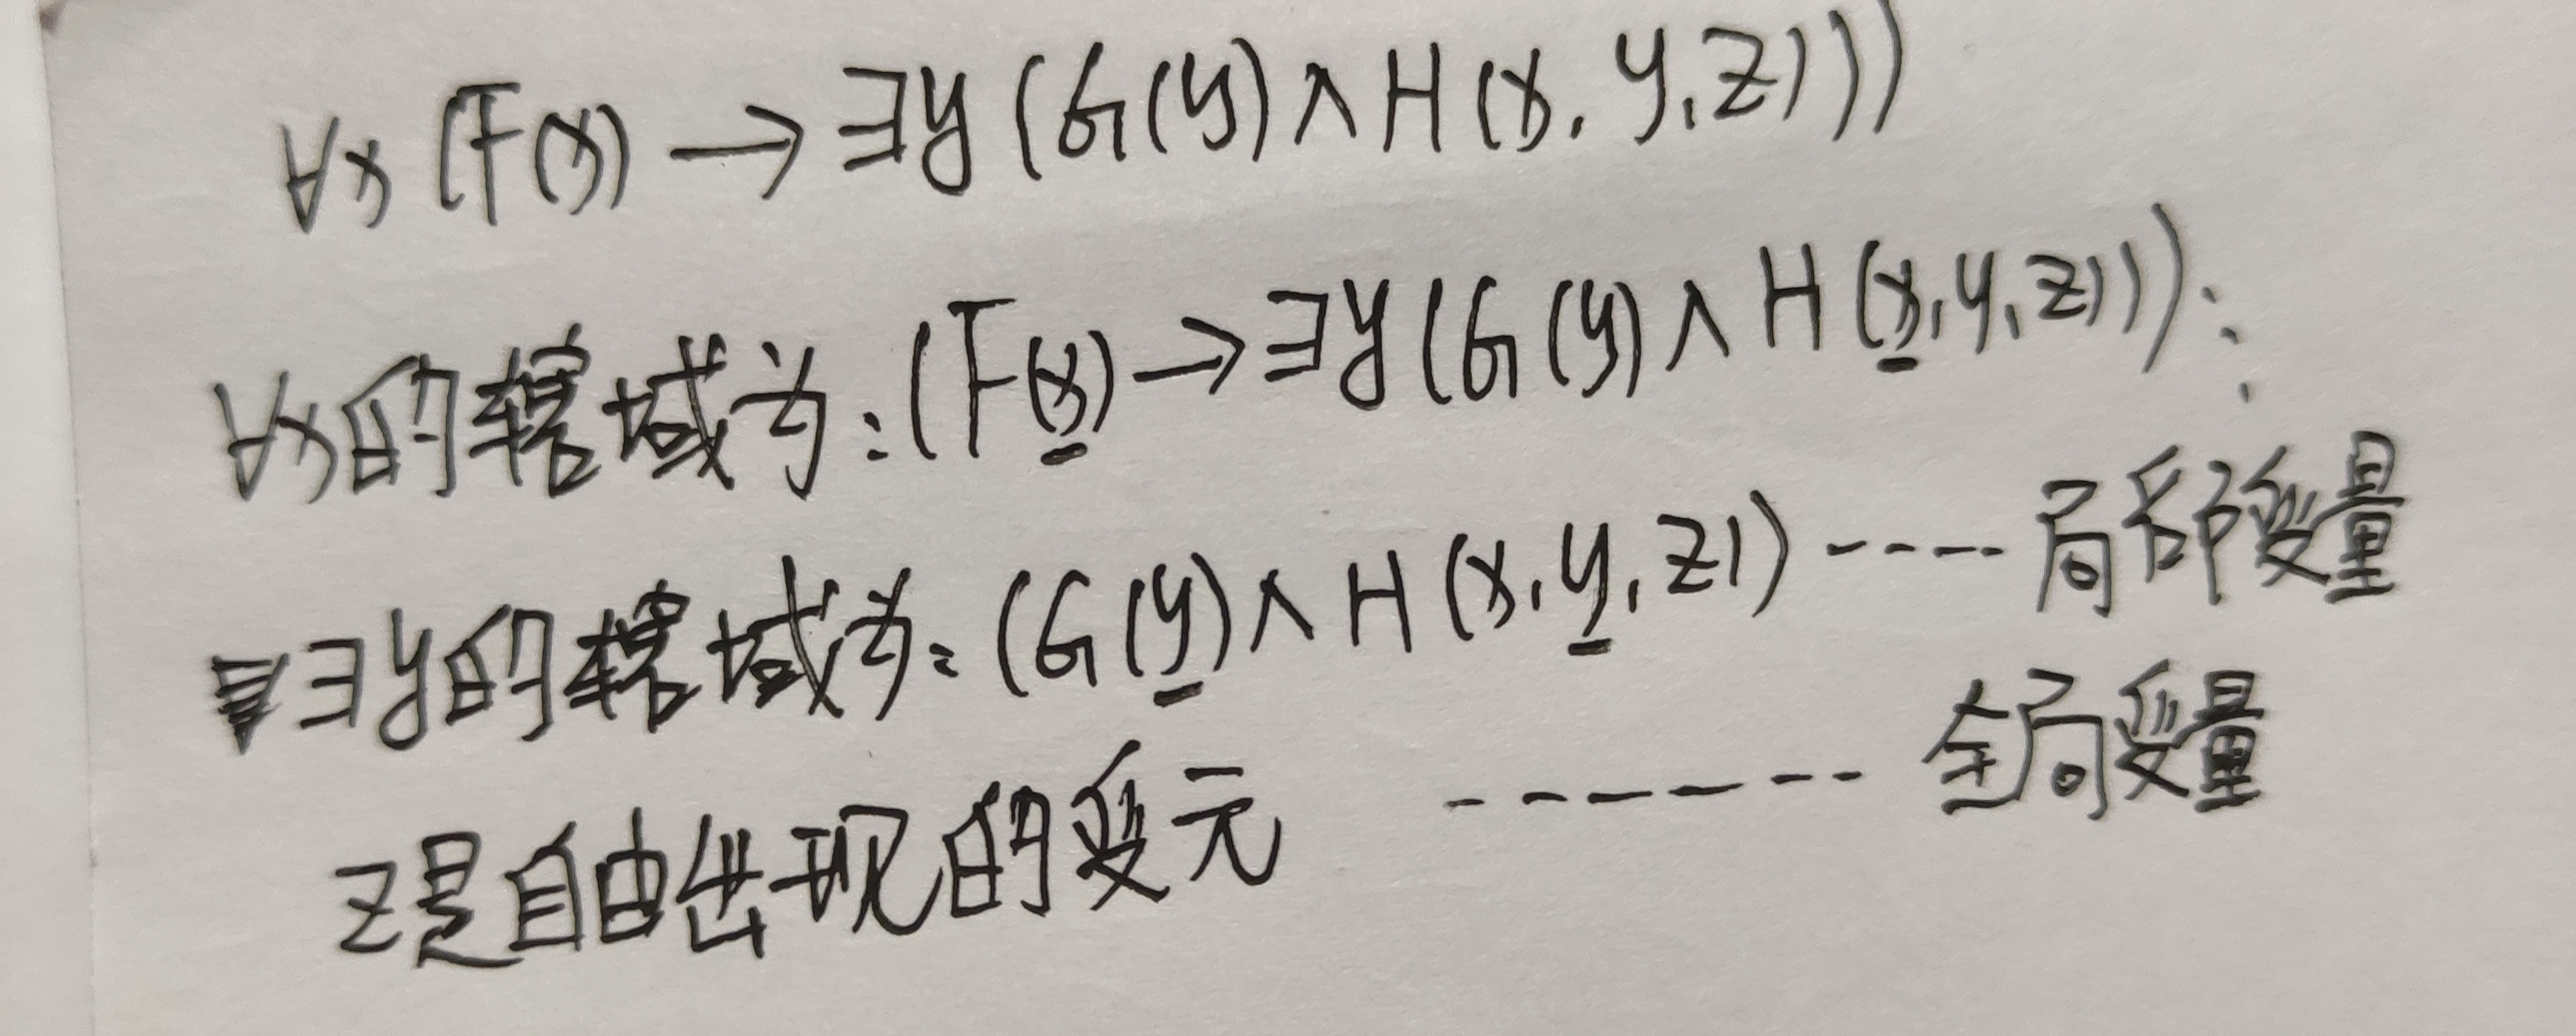 ∀x (F(x) → ∃y (G(y) ∧ H (x, y, z)))
∀x的辖域为: (F(x) → ∃y (G(y) ∧ H (x, y, z)));
∃y的辖域为: (G(y) ∧ H (x, y, z)) ---- 局部变量
z是自由出现的变元 ------- 全局变量